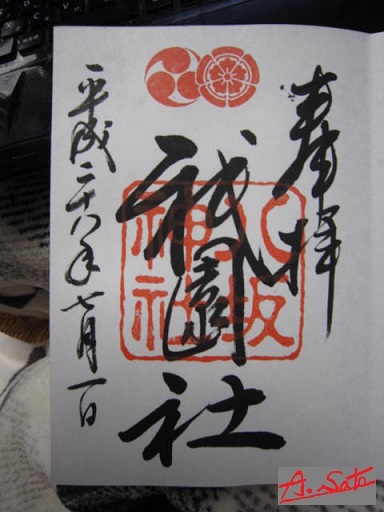 奉拝
八坂
神社
祇園社
平成二十八年七月一日
A. Sato